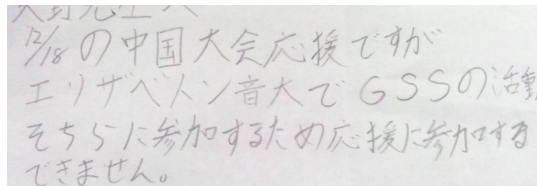 12/18の中国大会応援ですが
エリザベトン音大でGSSの活動
そちらに参加するため応援に参加する
できません。